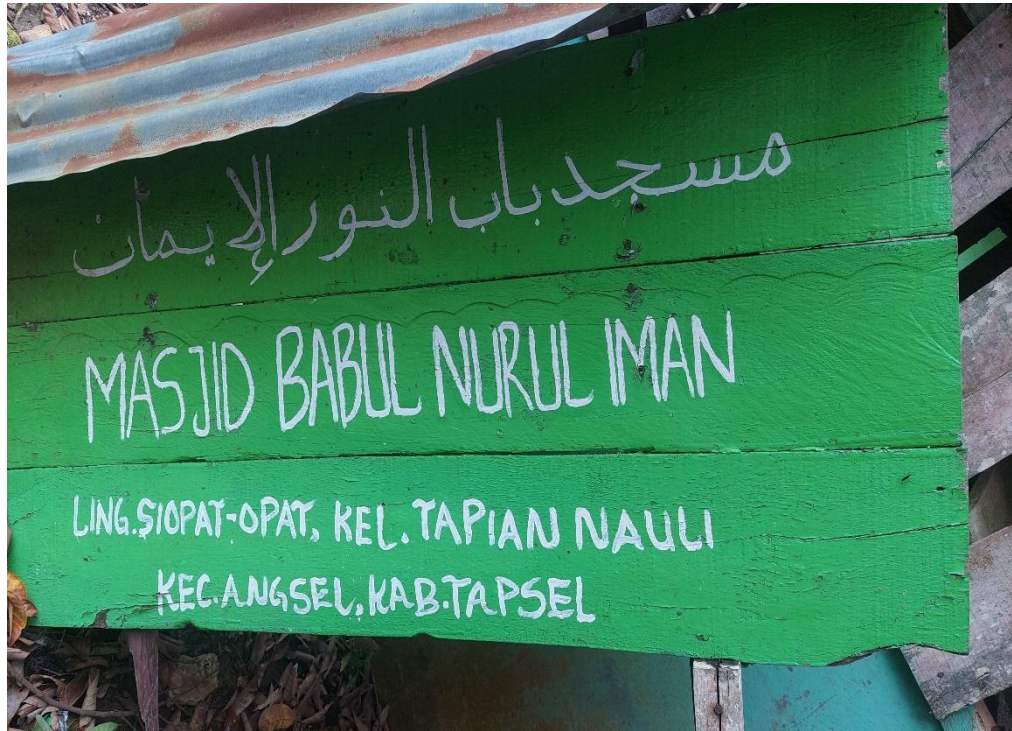 مسجد باب النور الإيمان
MASJID BABUL NURUL IMAN
LING.SIOPAT-OPAT, KEL.TAPIAN NAULI
KEC.ANGSEL,KAB.TAPSEL